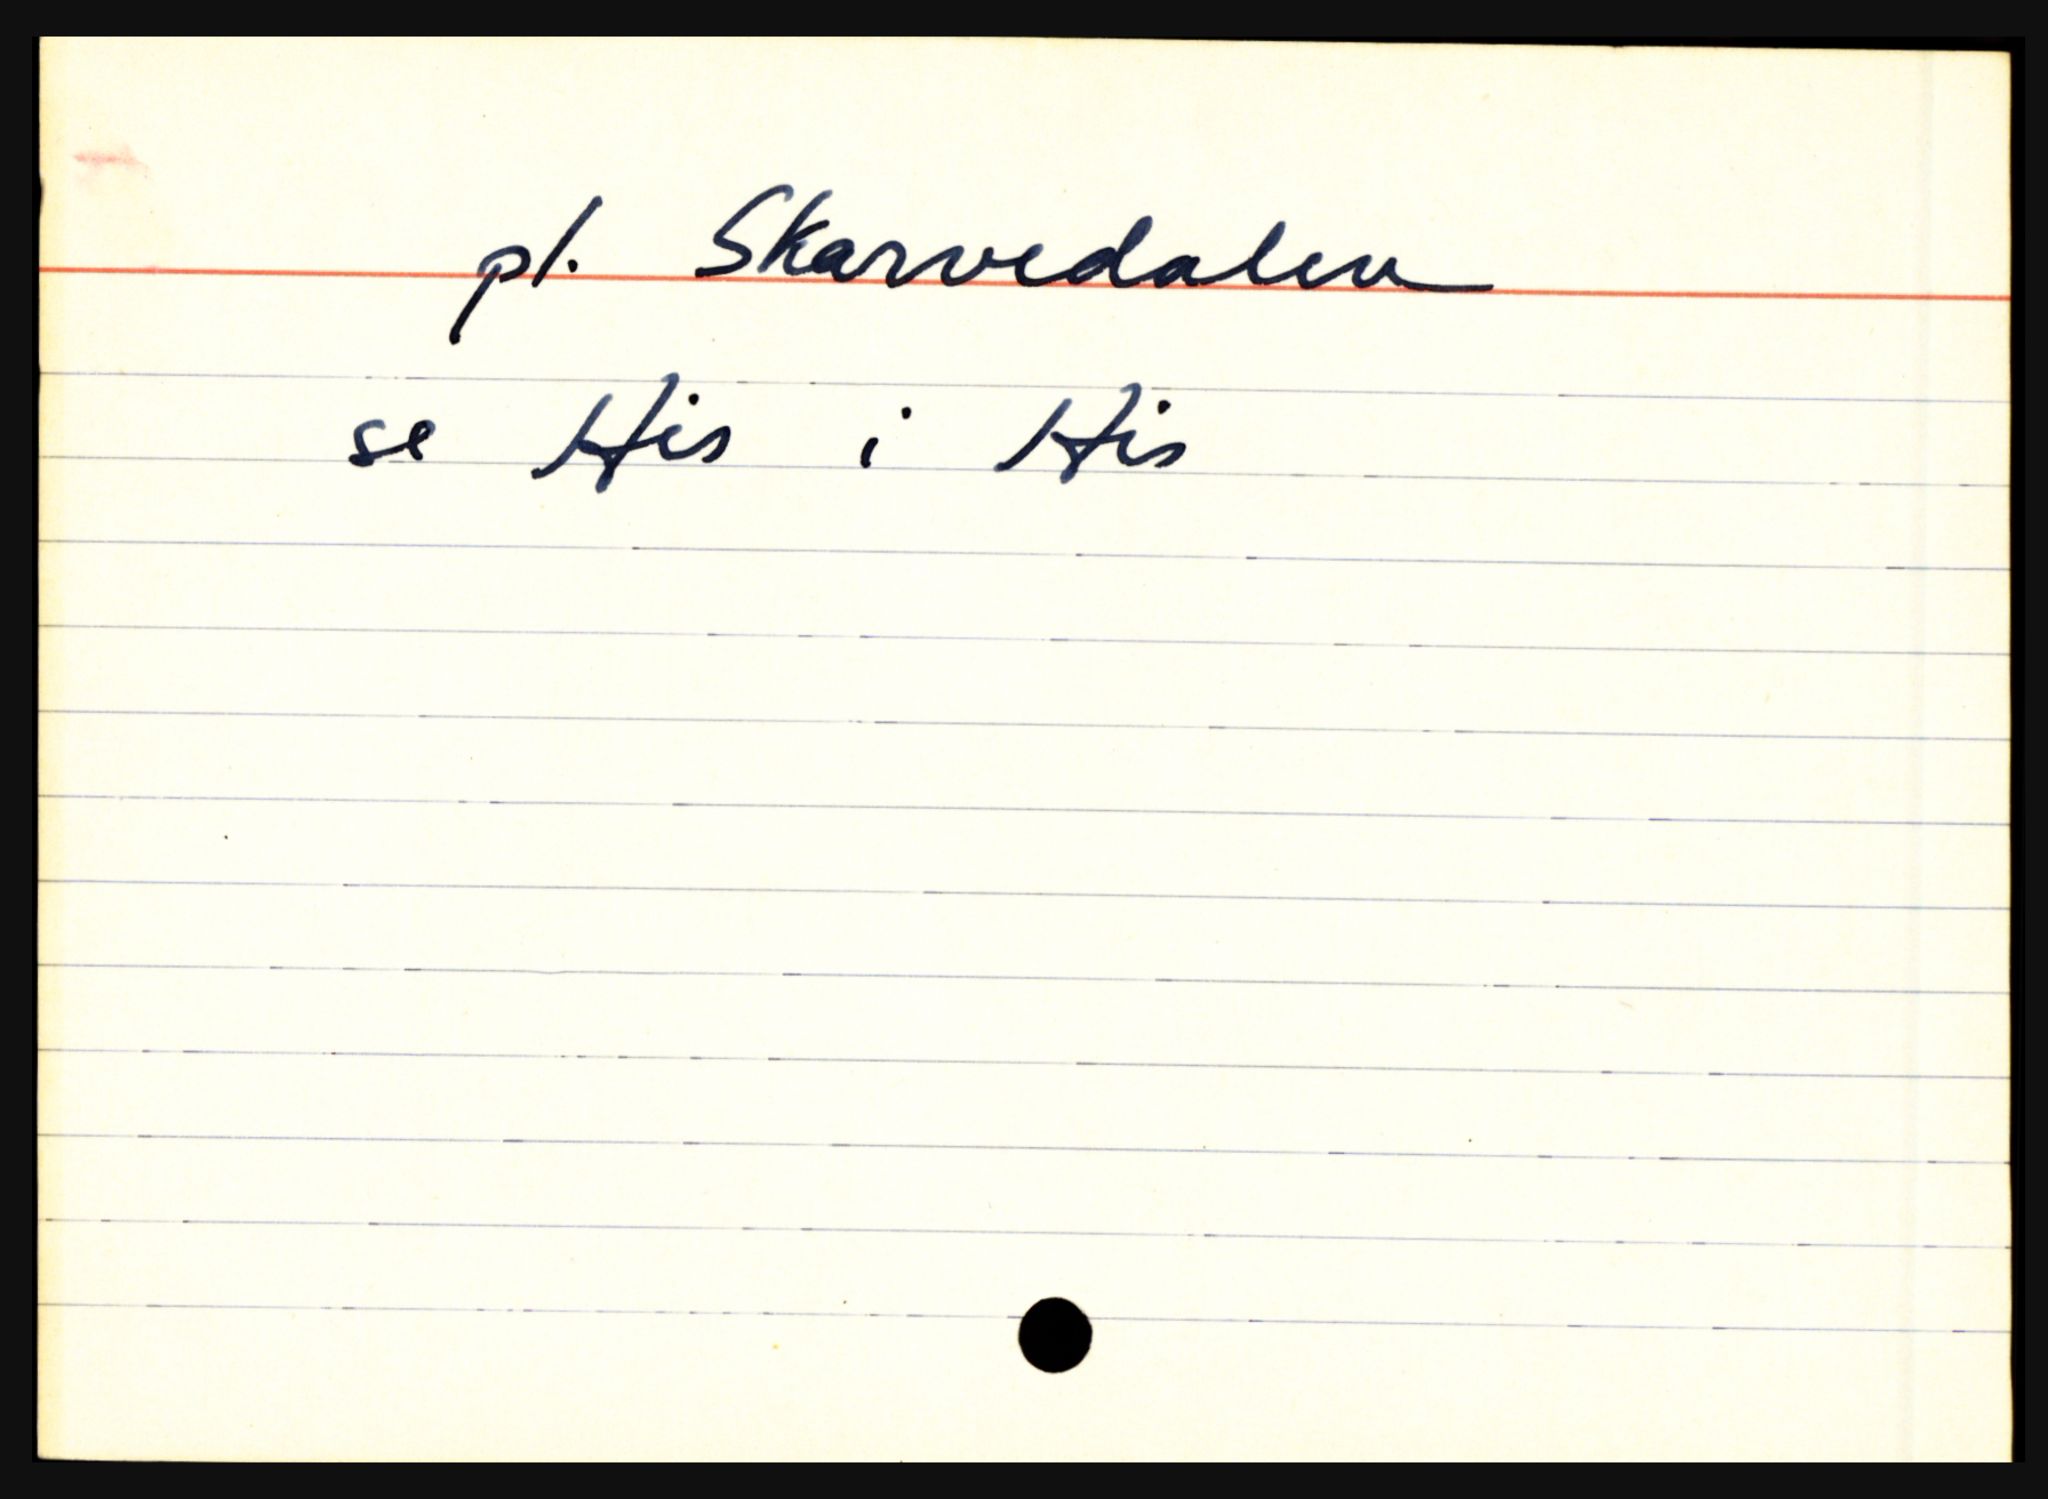 pl. Skarvedalen
se His i His